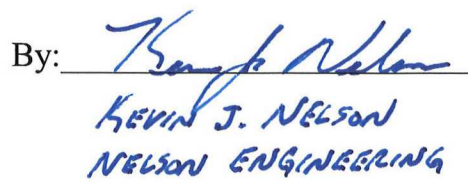 By: Kevin J. Nelson
KEVIN J. NELSON
NELSON ENGINEERING